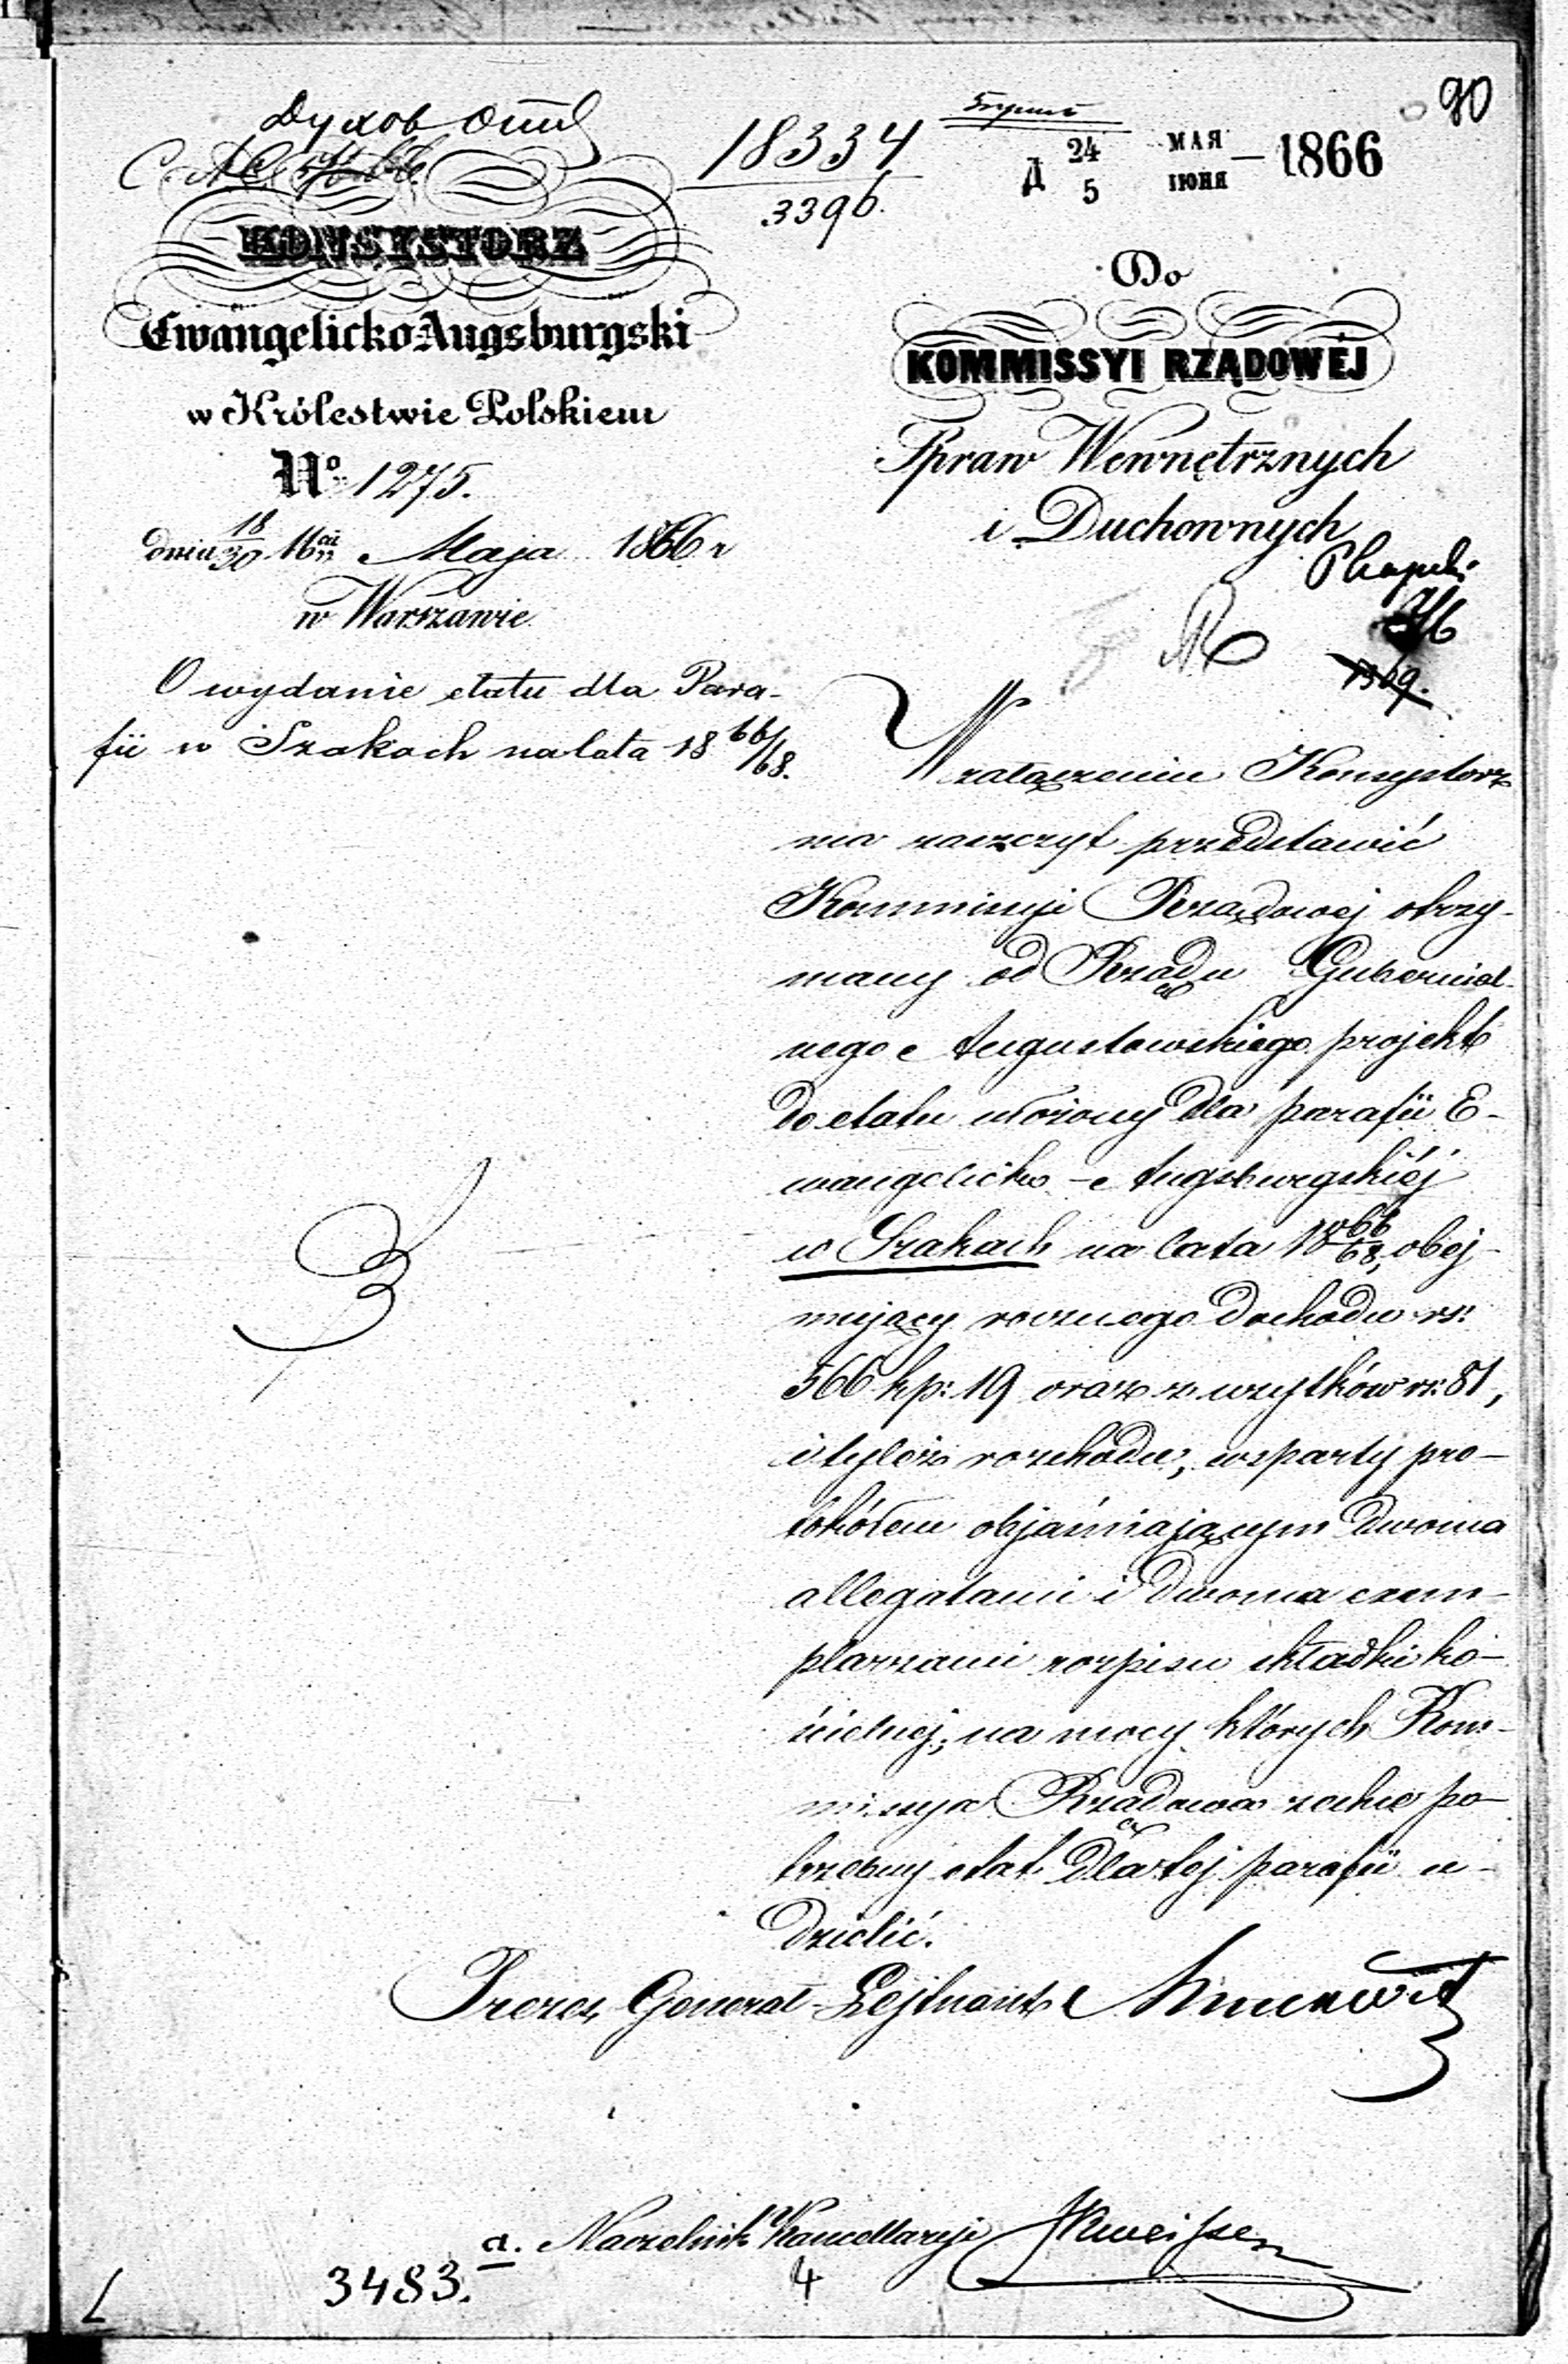 90
Духов Отд
18334
3396.
Д 24 МАЯ 5 ІЮНЯ — 1866
KONSYSTORZ
Ewangelicko-Augsburgski
w Królestwie Polskiem
No 1275.
dnia 18/30 Maja 1866 r
w Warszawie
O wydanie etatu dla Para-
fii w Szakach na lata 18 66/68.
Do
KOMMISSYI RZĄDOWÉJ
Spraw Wewnętrznych
i Duchownych
1369.
W załączeniu Konsystorz
ma zaszczyt przedstawić
Kommissyi Rządowej otrzy-
many od Rządu Gubernial-
nego Augustowskiego projekt
do etatu ułożony dla parafii E-
wangelicko-Augsburgskiéj
w Szakach na lata 18 66/68, obej-
mujący rocznego dochodu rs:
566 kp: 19 oraz z użytków rs: 81,
i tyleż rozchodu, wsparty pro-
tokółem objaśniającym dwoma
allegatami i dwoma exem-
plarzami rozpisu składki ko-
ścielnej, na mocy których Kom-
missya Rządowa zechce po-
trzebny etat dla tej parafii u-
dzielić.
Prezes, Generał-Lejtnant
a. Naczelnik Kancellaryi
3483.
4